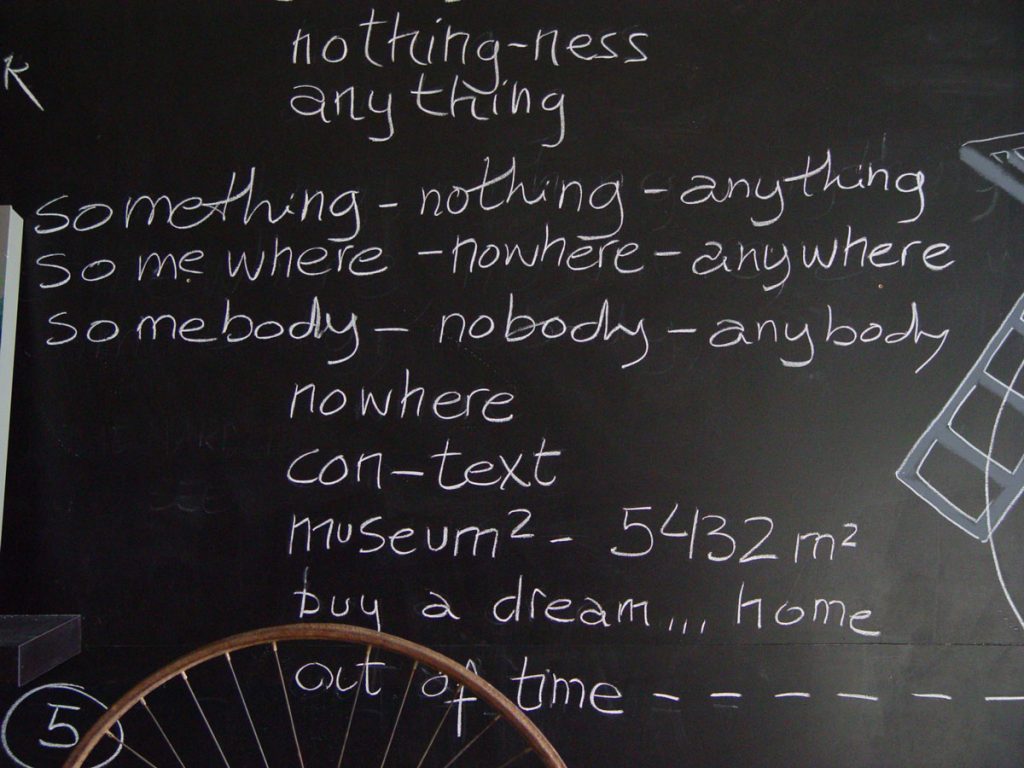 nothing-ness
K
anything
something - nothing - anything
somewhere - nowhere - anywhere
somebody - nobody - anybody
nowhere
con-text
museum² - 5432 m²
buy a dream,,, home
out of time - - - - - -
5